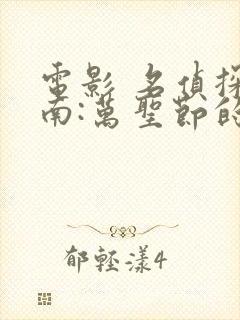 電影 名偵探
南:萬聖節的
郁輕漾4